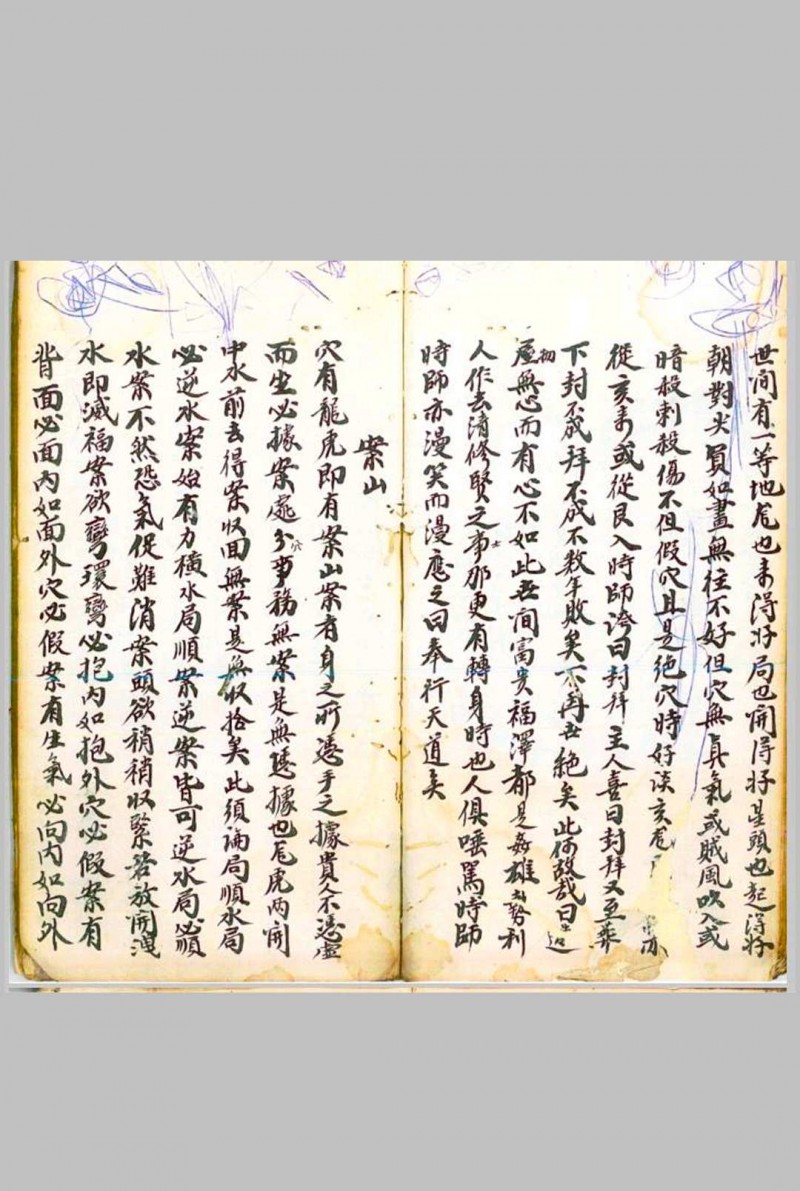 世间有一等地龙也来得好局也開得好星頭也起得好
朝對尖員如畫無往不好但穴無真氣或賊風吹入或
暗殺刺殺傷不但假穴且是绝穴時好談亥龙
從亥来或從艮入時師誇曰封拜主人喜曰封拜又至葬
下封不成拜不成不数年敗矣不再世絶矣此何故哉曰
无無心而有心不如此世间富貴福澤都是奸雄勢利
人作去清修賢之事那更有轉身時也人俱唾罵時師
時師亦漫笑而漫應之曰奉行天道矣
案山
穴有龍虎即有案山案者身之所憑手之據貴人不憑虚
而坐必據案處分事務無案是無憑據也龙虎两開
中水前去得案收回無案是無收拾矣此須論局順水局
必逆水案始有力橫水局順案逆案皆可逆水局必順
水案不然恐氣促難消案頭欲稍稍收緊若放開洩
水即減福案欲彎環彎必抱内如抱外穴必假案有
背面必面内如面外穴必假案有生氣必向内如向外